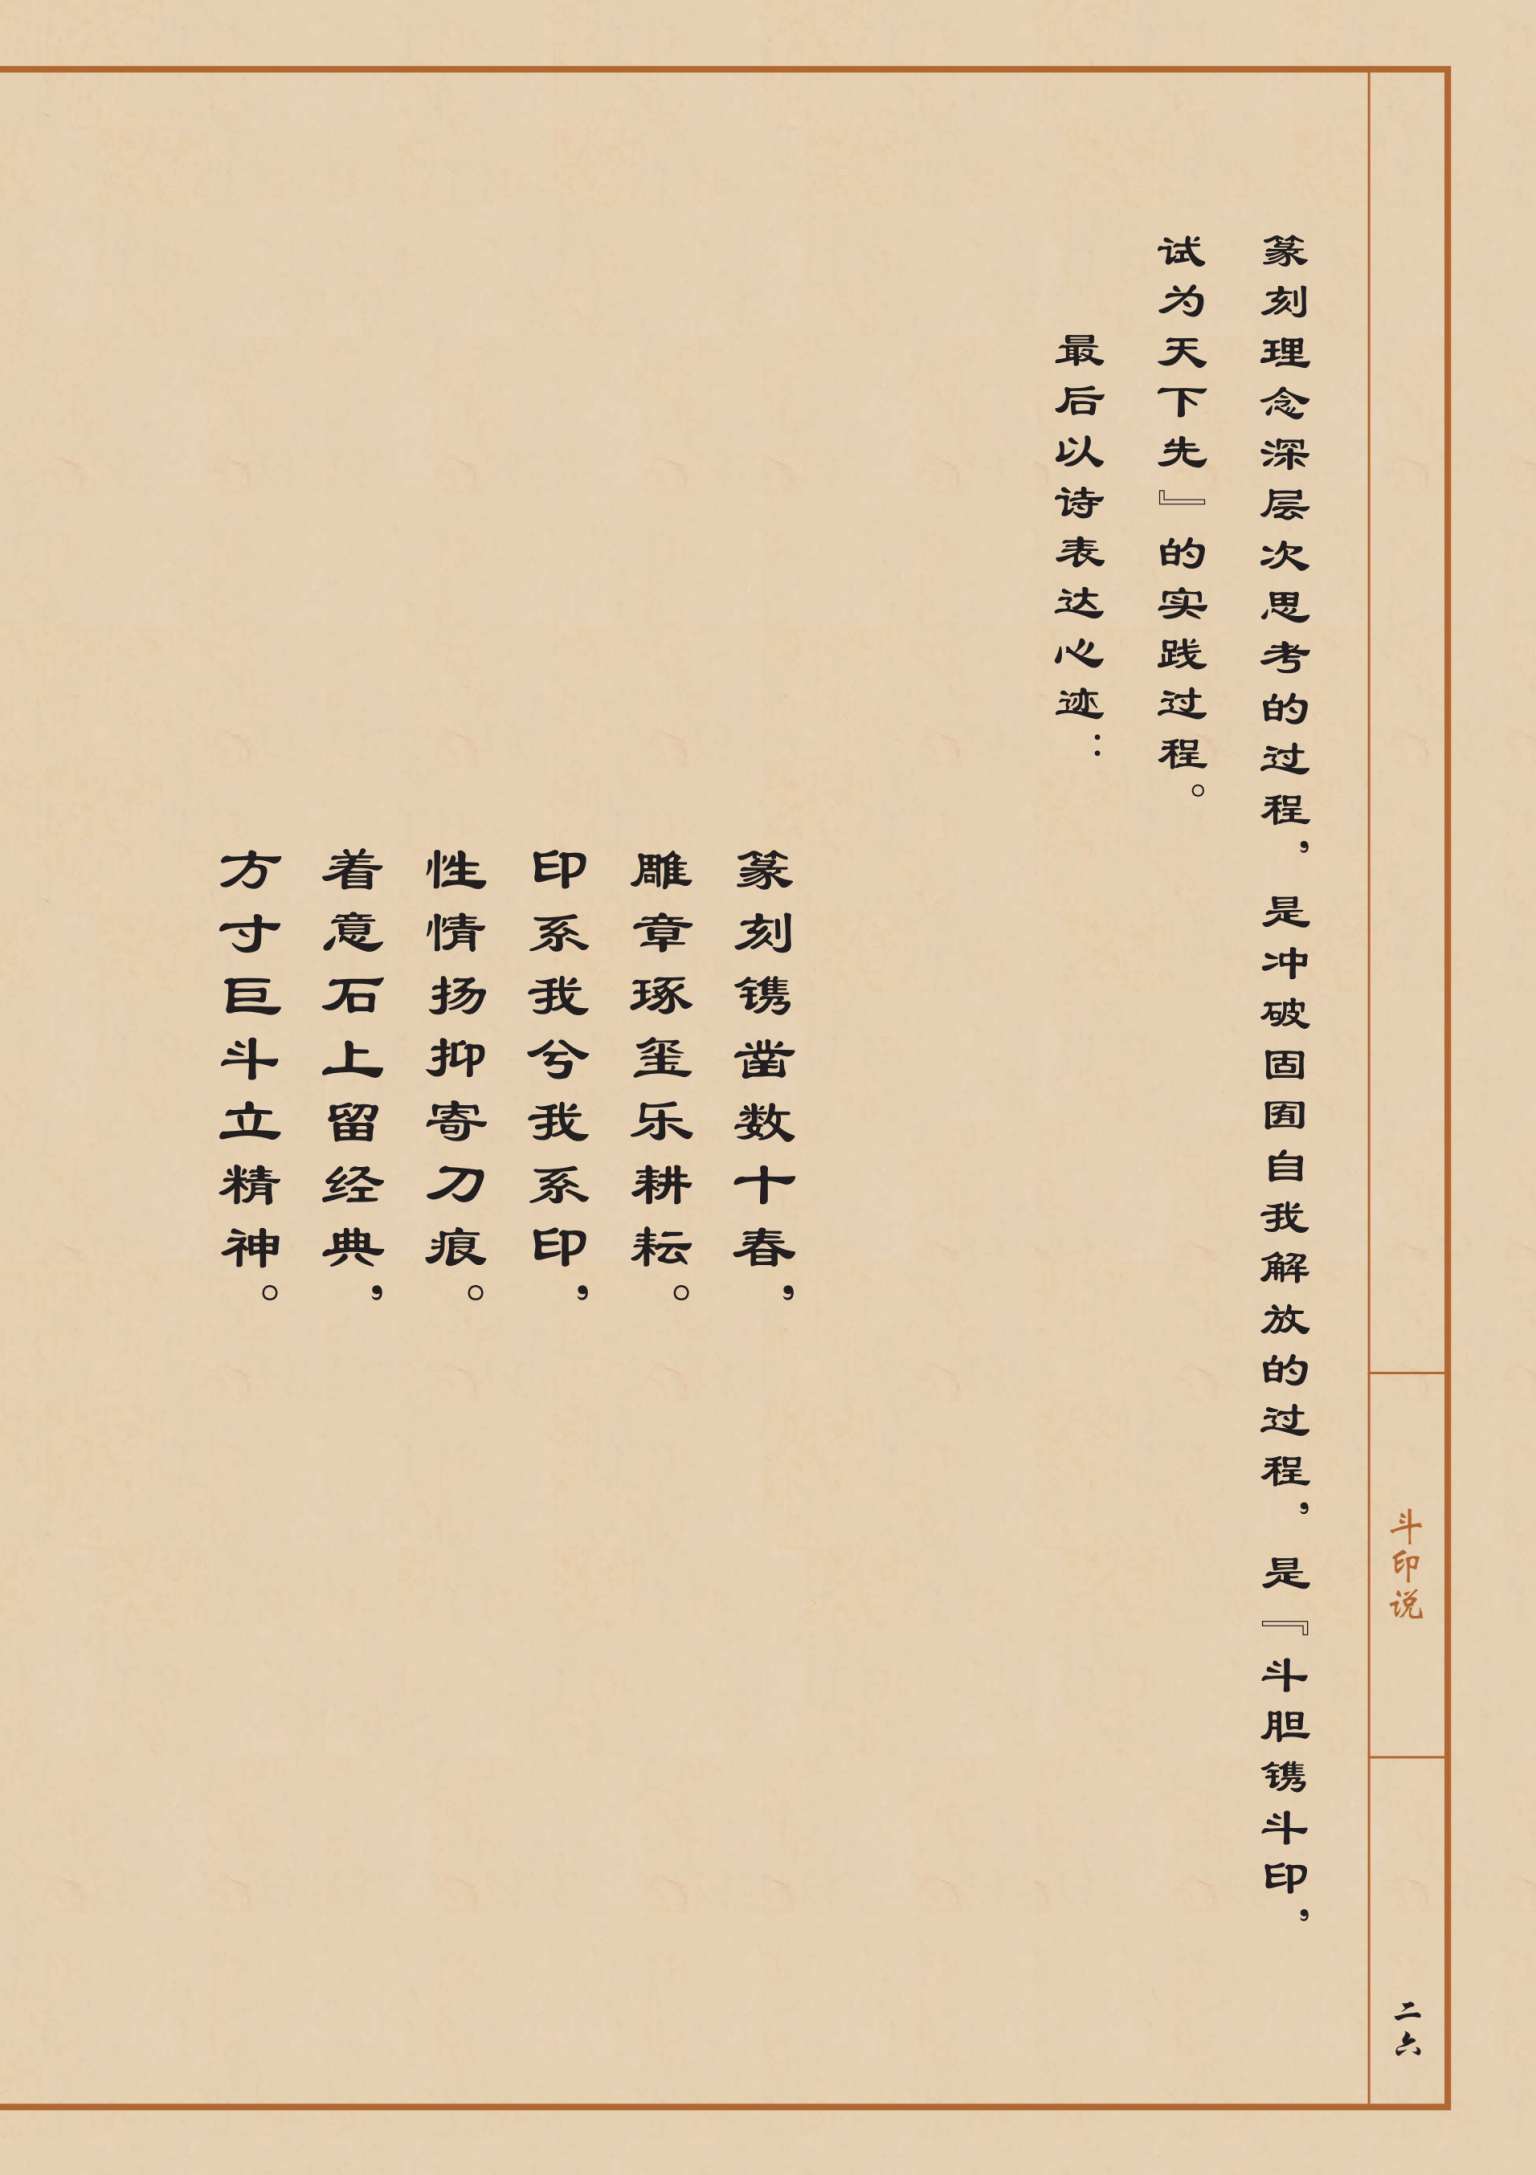 篆刻理念深层次思考的过程，是冲破固囿自我解放的过程，是『斗胆镌斗印，
试为天下先』的实践过程。
最后以诗表达心迹：
篆刻镌凿数十春，
雕章琢玺乐耕耘。
印系我兮我系印，
性情扬抑寄刀痕。
着意石上留经典，
方寸巨斗立精神。
斗印说
二六